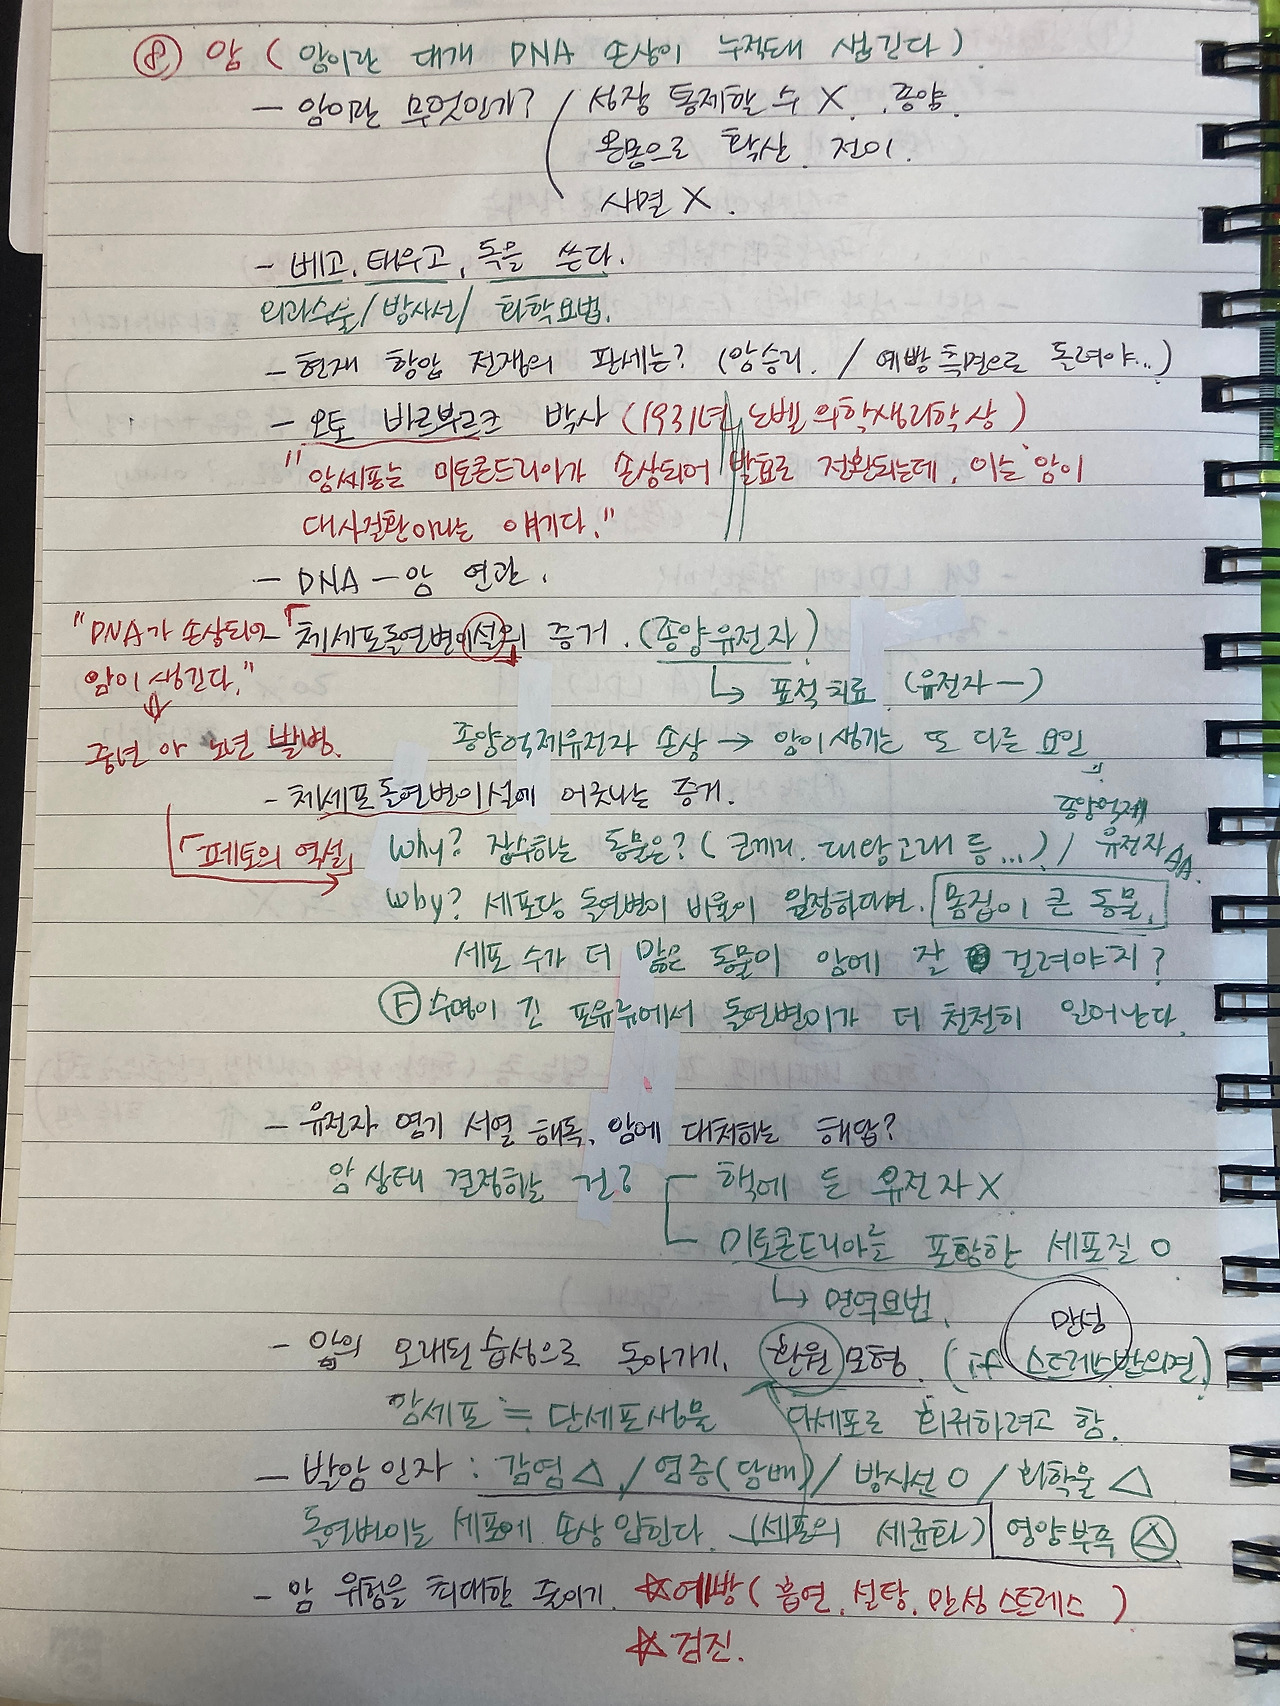 ⑧ 암 ( 암이란 대개 DNA 손상이 누적돼 생긴다 )
- 암이란 무엇인가? / 성장 통제할 수 X. 종양.
온몸으로 확산. 전이.
사멸 X.
- 베고, 태우고, 독을 쓴다.
외과수술 / 방사선 / 화학요법.
- 현재 항암 전쟁의 판세는? (암승리. / 예방 측면으로 돌려야..)
- 오토 바르부르크 박사 (1931년 노벨 의학생리학상)
"암세포는 미토콘드리아가 손상되어 발효로 전환되는데, 이는 암이
대사질환이라는 얘기다."
- DNA - 암 연관.
"DNA가 손상되어 암이 생긴다."
중년 아 노년 발병.
-「체세포돌연변이설의 증거. (종양유전자)
↳ 표적치료 (유전자 -)
종양억제유전자 손상 → 암이 생기는 또 다른 요인
- 체세포돌연변이설에 어긋나는 증거.
「페토의 역설」 why? 장수하는 동물은? ( 코끼리, 대왕고래 등...) / 종양억제 유전자 AA.
why? 세포당 돌연변이 비율이 일정하다면, 몸집이 큰 동물,
세포 수가 더 많은 동물이 암에 잘 걸려야지?
Ⓕ 수명이 긴 포유류에서 돌연변이가 더 천천히 일어난다.
- 유전자 염기 서열 해독, 암에 대처하는 해답?
암 상태 결정하는 건? 핵에 든 유전자 X
미토콘드리아를 포함한 세포질 O
↳ 면역요법.
- 암의 오래된 습성으로 돌아가기. 환원 모형. (if 만성 스트레스받으면)
암세포 ≒ 단세포생물 다세포로 회귀하려고 함.
- 발암 인자 : 감염 △ / 염증(담배) / 방사선 O / 화학물 △
돌연변이는 세포에 손상 입힌다. (세포의 세균화) 영양부족 △
- 암 위험을 최대한 줄이기. ☆예방 ( 흡연, 설탕, 만성스트레스 )
☆ 검진.